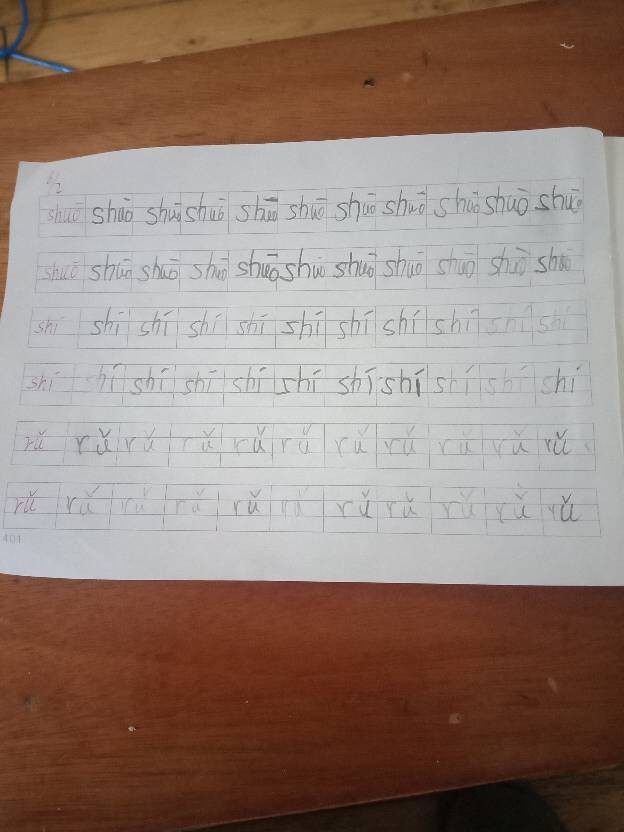 shuō shuō shuō shuō shuō shuō shuō shuō shuō shuō shuō
shuō shuō shuō shuō shuō shuō shuō shuō shuō shuō shuō
shí shí shí shí shí shí shí shí shí shí shí
shí shí shí shí shí shí shí shí shí shí shí
rǔ rǔ rǔ rǔ rǔ rǔ rǔ rǔ rǔ rǔ rǔ
rǔ rǔ rǔ rǔ rǔ rǔ rǔ rǔ rǔ rǔ rǔ
401